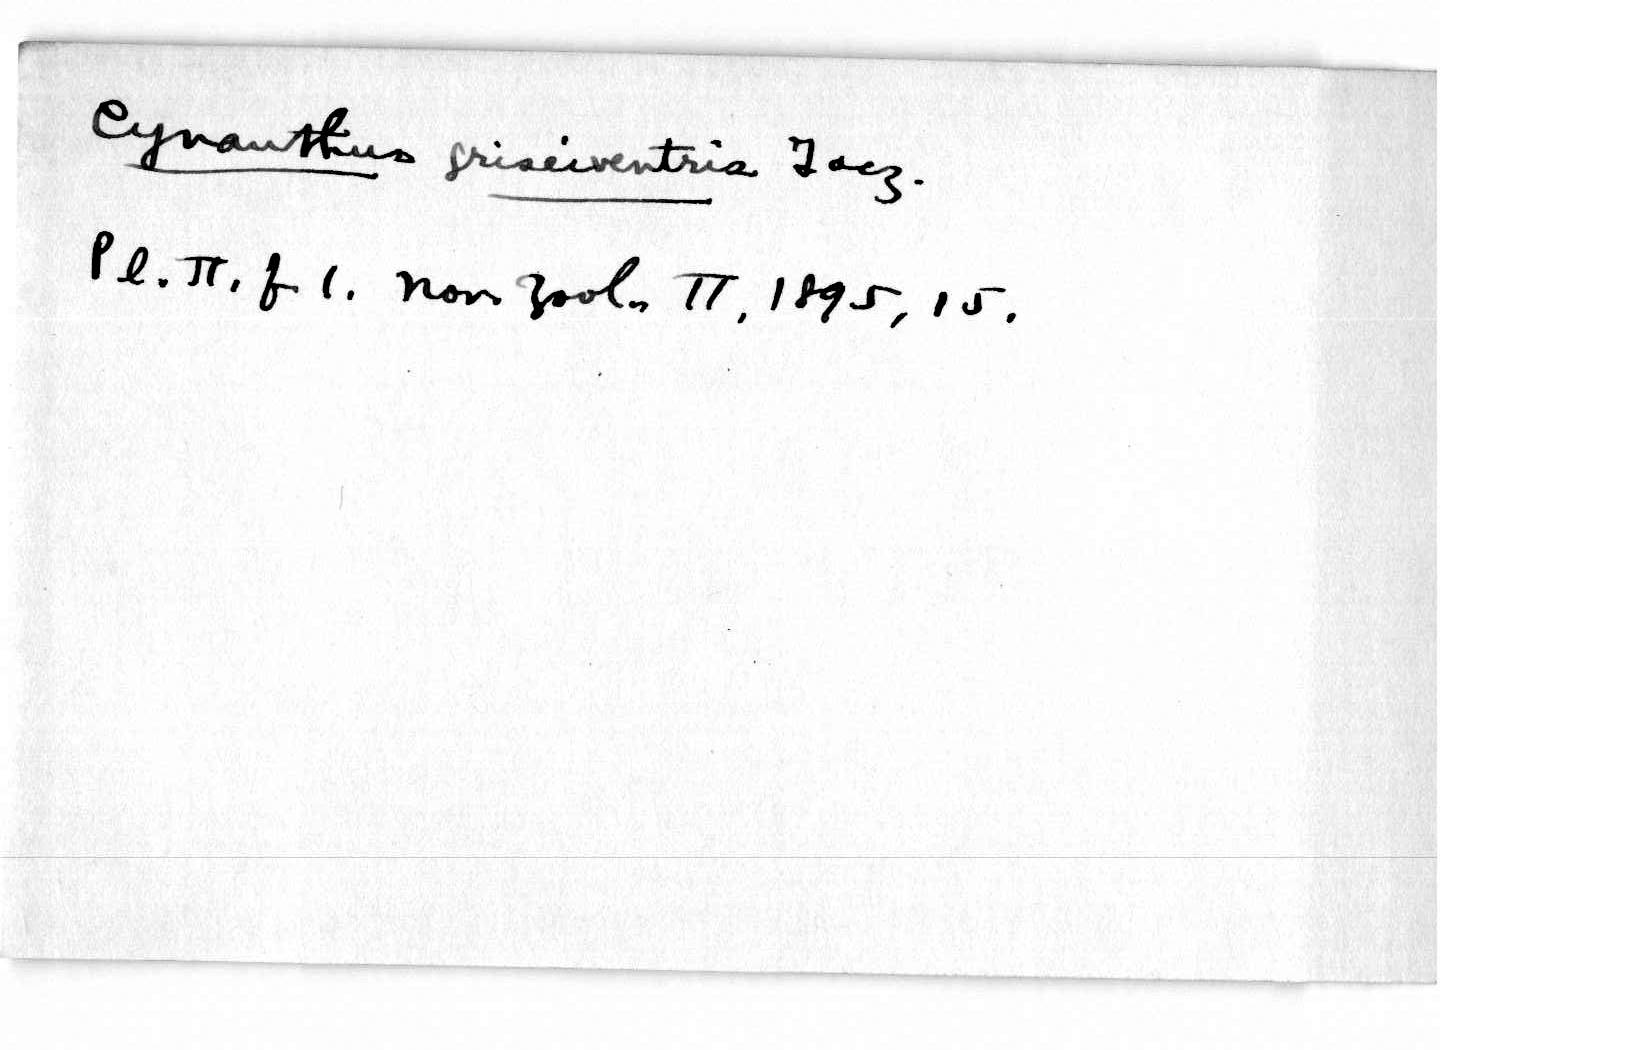 Cynanthus griseiventris Tacz.
Pl. II. f 1. Nov. Zool. II, 1895, 15.